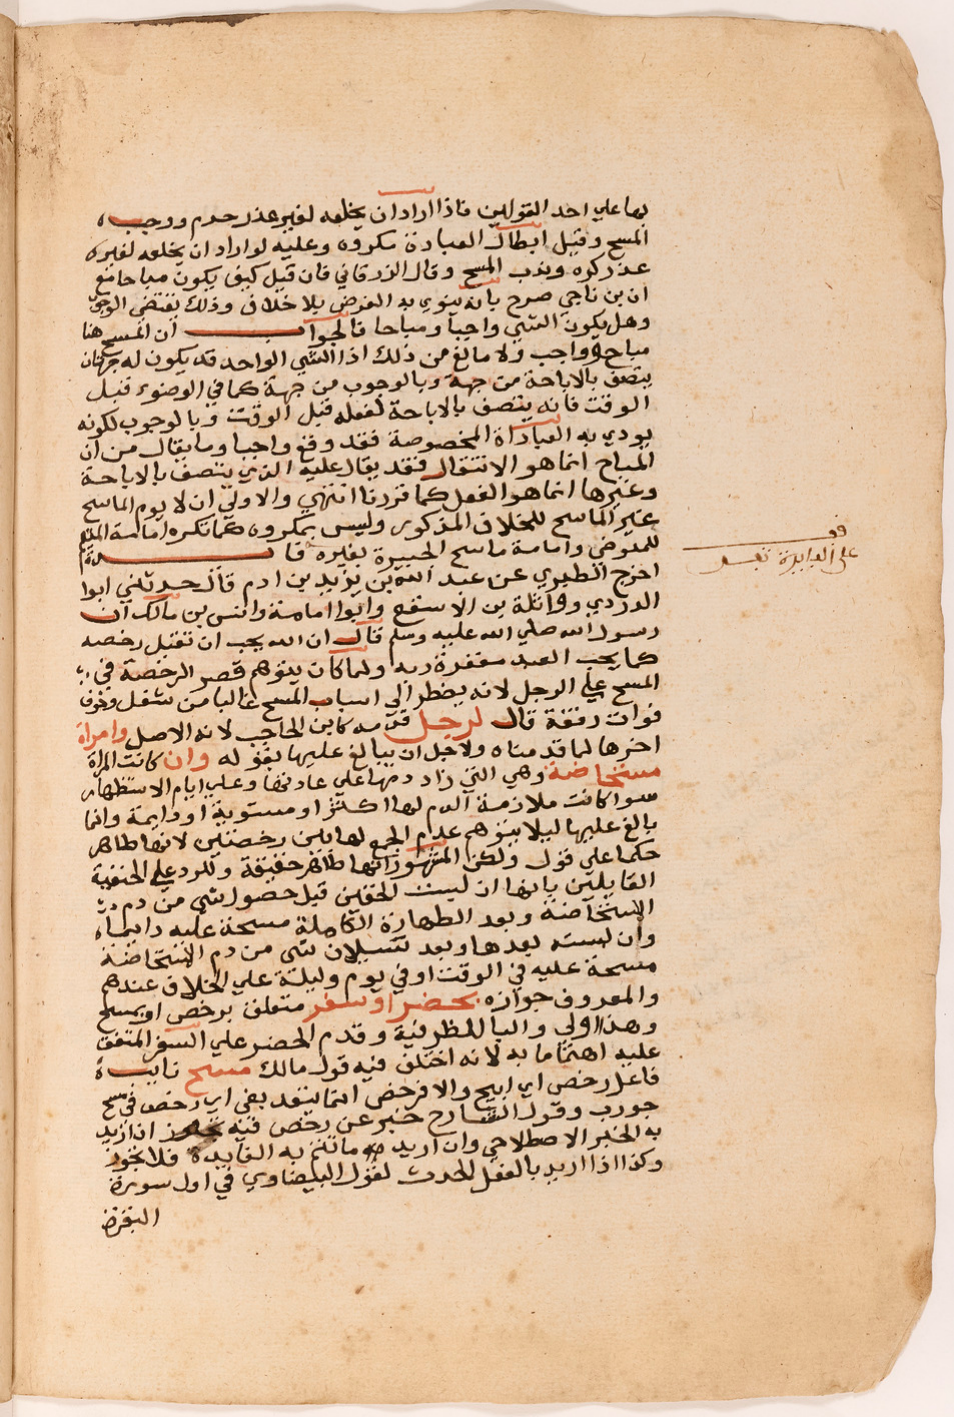 لها علي احد القولين فاذا اراد ان يخلعه لغير عذر حرم ووجب
المسح وقيل ابطال العبادة مكروه وعليه لو اراد ان يخلعه لغير
عذر كره وندب المسح وقال الزرقاني فان قيل كيف يكون مباحا مع
ان بن ناجي صرح بانه ينوي به الفرض بلا خلاف وذلك يقتضي الوجوب
وهل يكون الشي واجبا ومباحا فالجواب ان المسح هنا
مباح وواجب ولا مانع من ذلك اذ الشي الواحد قد يكون له جهتان
يتصف بالاباحة من جهة وبالوجوب من جهة كما في الوضوء قبل
الوقت فانه يتصف بالاباحة لفعله قبل الوقت وبالوجوب لكونه
يودي به العبادة المخصوصة فقد وقع واجبا وما يقال من ان
المباح انما هو الانتقال فقد يقال عليه الذي يتصف بالاباحة
وغيرها انما هو الفعل كما قررنا انتهي والاولي ان لا يوم الماسح
غير الماسح للخلاف المذكور وليس بمكروه كما تكره امامة المتيمم
للمتوضي وامامة ماسح الجبيرة بغيره فايـــدة
اخرج الطبري عن عبد الله بن يزيد بن ادم قال حدثني ابوا
الدردي وواثلة بن الاسقع وابوا امامة وانس بن مالك ان
رسول الله صلي الله عليه وسلم قال ان الله يحب ان تقبل رخصه
كما يحب العبد مغفرة ربه ولما كان يتوهم قصر الرخصة في
المسح علي الرجل لانه يضطر الي اسباب المسح غالبا من شغل وخوف
فوات رفقة قال لرجل قدمه كابن الحاجب لانه الاصل وامراة
اخرها لما قدمناه ولاجل ان يبالغ عليها بقوله وان كانت المراة
مستحاضة وهي التي زاد دمها علي عادتها وعلي ايام الاستظهار
سوا كانت ملازمة الدم لها اكثر او مستوية او دايمة وانما
بالغ عليها ليلا يتوهم عدم الجمع لها بين رخصتين لانها طاهر
حكما علي قول ولكن المشهور انها طاهر حقيقة وللرد علي الحنفية
القايلين بانها ان لبست الخفين قبل حصول شي من دم
الاستحاضة وبعد الطهارة الكاملة مسحت عليه دايما
وان لبسته بعدها وبعد سيلان شي من دم الاستحاضة
مسحة عليه في الوقت او في يوم وليلة علي الخلاف عندهم
والمعروف جوازه بحضر او سفر متعلق برخص او بمسح
وهذا اولي والبا للظرفية وقدم الحضر علي السفر المتفق
عليه اهتماما به لانه اختلف فيه قول مالك مسح نايب
فاعل رخص اي ابيح والا فرخص انما يتعد بفي اي رخص في مسح
جورب وقول الشارح خبر عن رخص فيه ان اريد
به الخبر الاصطلاحي وان اريد ما تتم به الفايدة فلا يجوز
وكذا اذا اريد بالفعل الحدث لقول البيضاوي في اول سورة
البقرة
قف
علي الفايدة